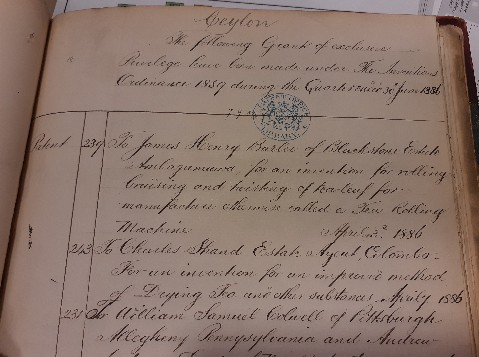 Ceylon
The following Grant of exclusive
Privilege have been made under The Inventions
Ordinance 1859 during the Quarter ended 30 June 1886
PATENT OFFICE
LIBRARY
Patent 239 To James Henry Barber of Blackstone Estate
Ambagamuwa for an invention for rolling
bruising and twisting of tea leaf for
manufacture otherwise called a Tea Rolling
Machine April 1886
243 To Charles Shand Estate Agent, Colombo
For an invention for an improved method
of Drying Tea and other substances, April 7 1886
231 To William Samuel Colwell of Pittsburgh
Allegheny Pennsylvania and Andrew